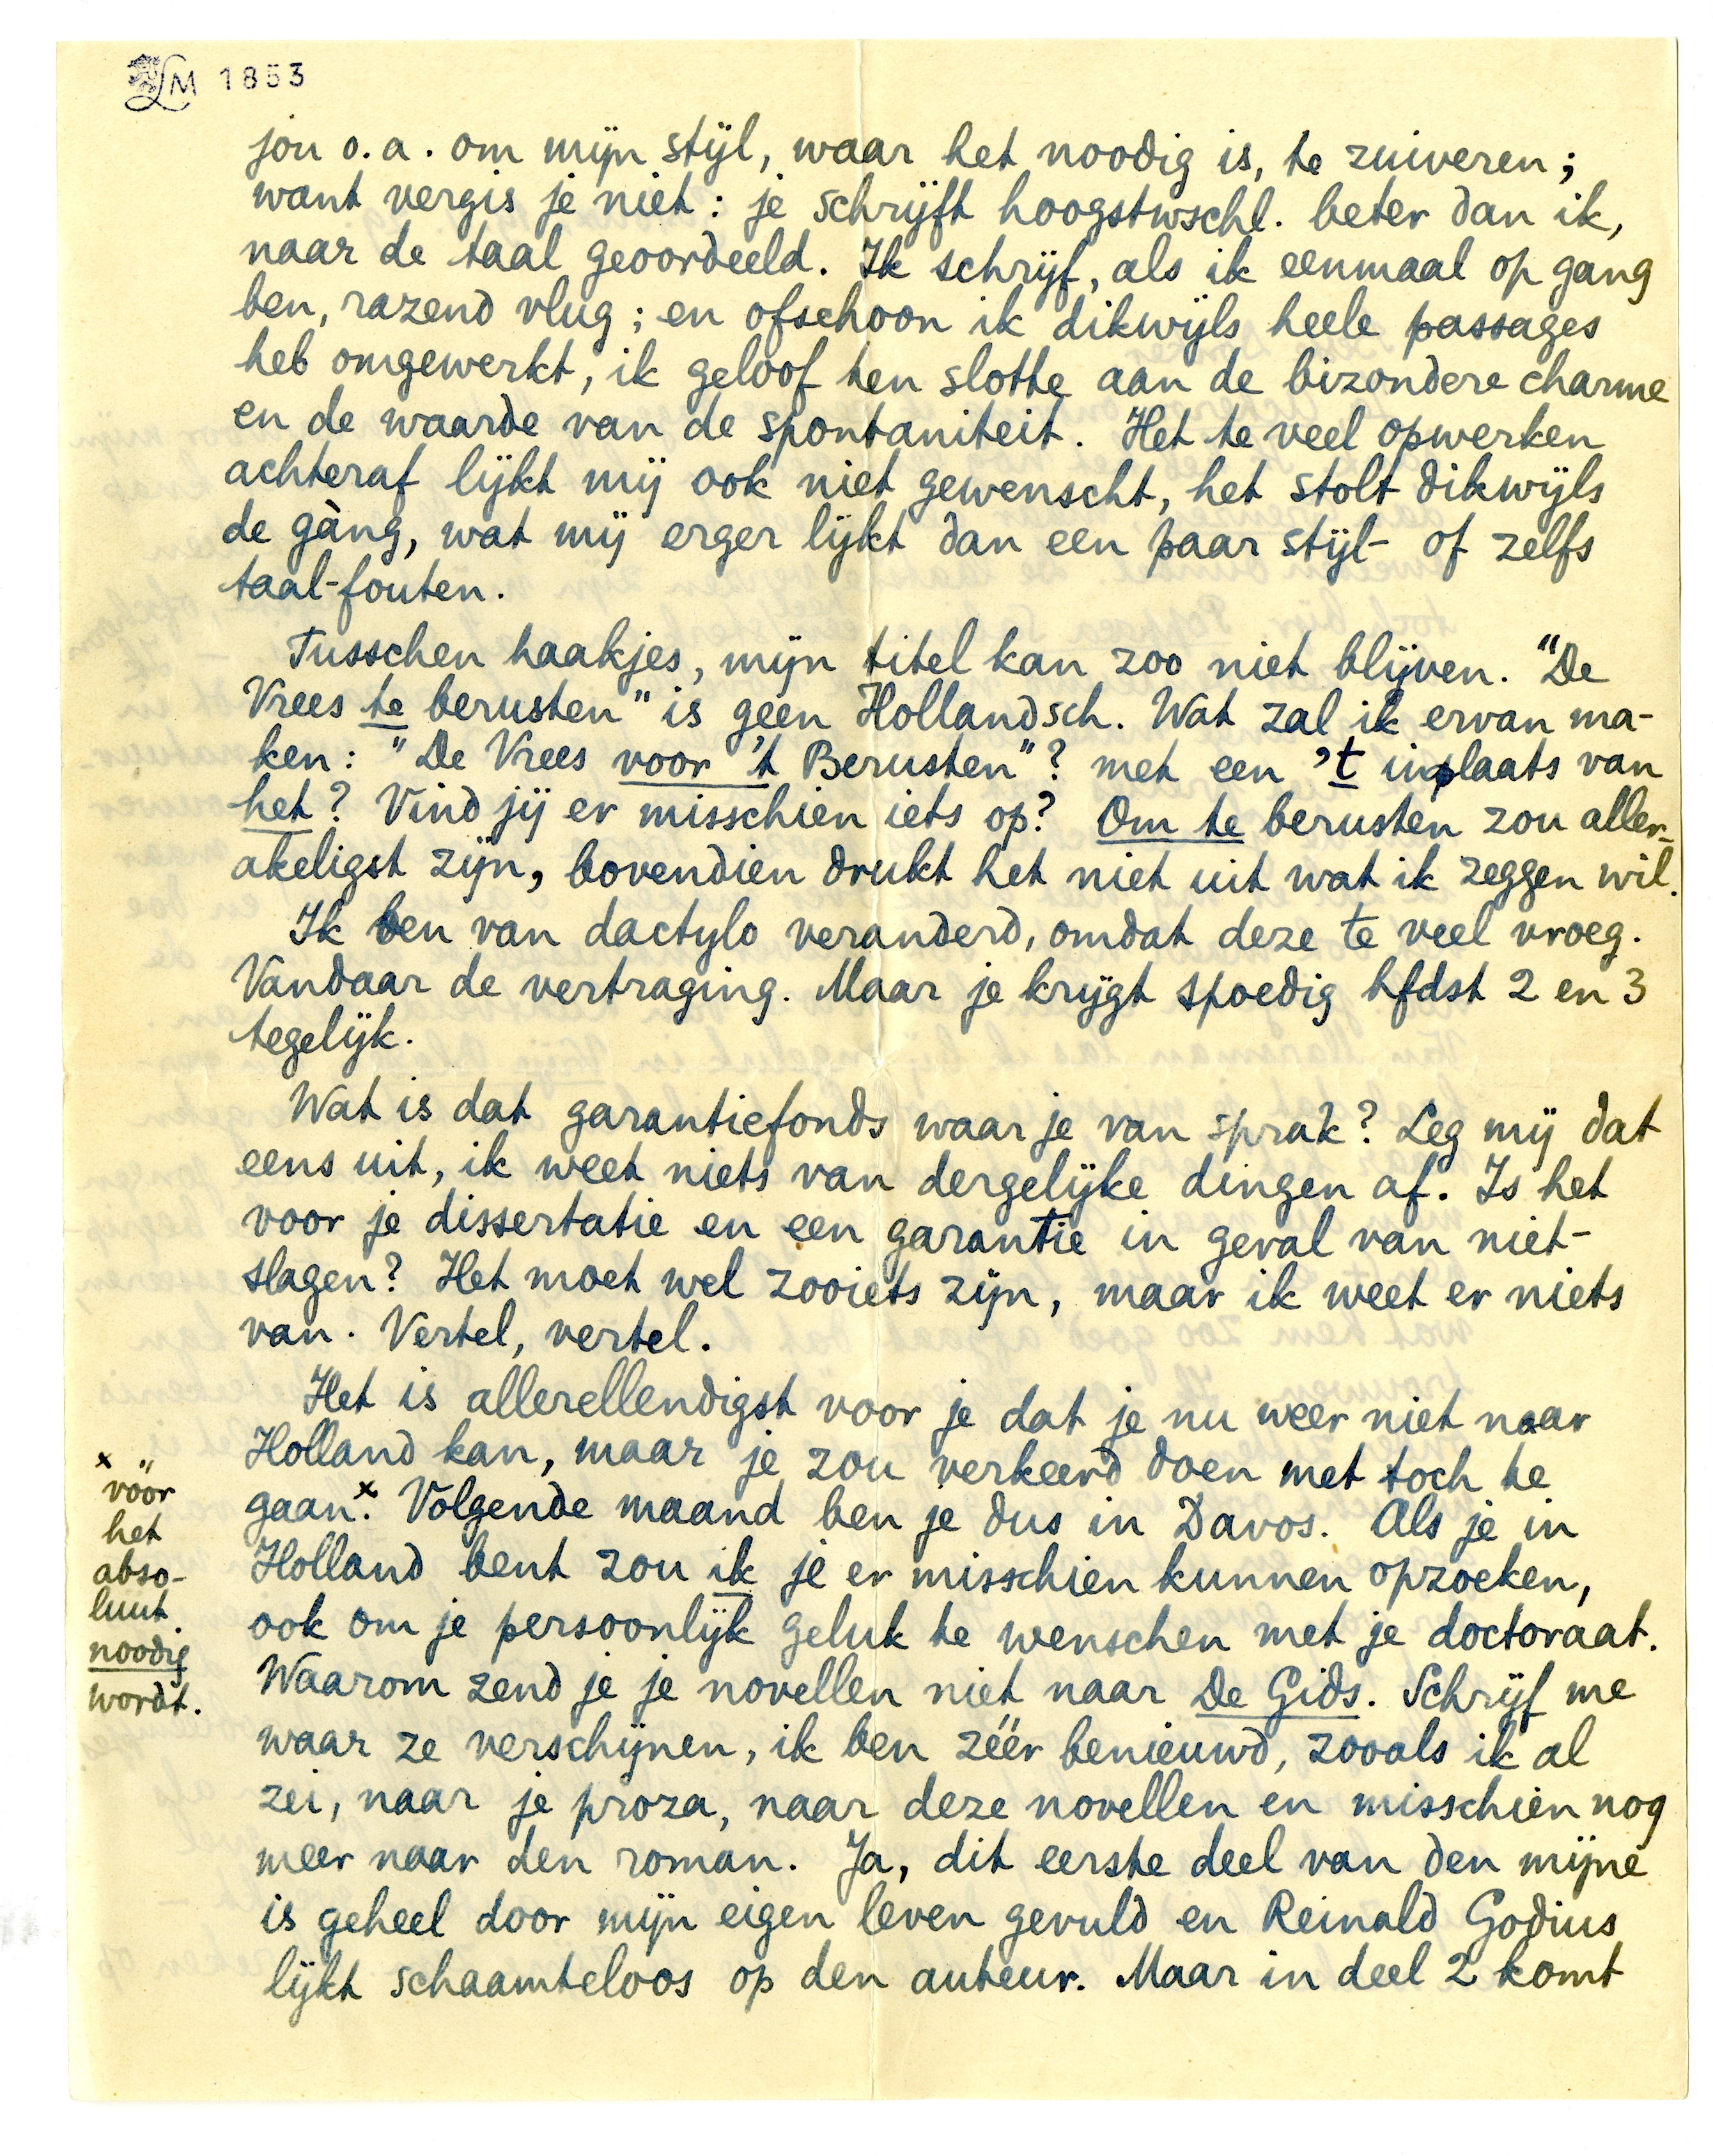 LM 1853
jou o.a. om mijn stijl, waar het noodig is, te zuiveren;
want vergis je niet: je schrijft hoogstwschl. beter dan ik,
naar de taal geoordeeld. Ik schrijf, als ik eenmaal op gang
ben, razend vlug; en ofschoon ik dikwijls heele passages
heb omgewerkt, ik geloof ten slotte aan de bizondere charme
en de waarde van de spontaniteit. Het te veel opwerken
achteraf lijkt mij ook niet gewenscht, het stolt dikwijls
de gàng, wat mij erger lijkt dan een paar stijl- of zelfs
taal-fouten.
Tusschen haakjes, mijn titel kan zoo niet blijven. "De
Vrees te berusten" is geen Hollandsch. Wat zal ik ervan ma-
ken: "De Vrees voor 't Berusten"? met een 't inplaats van
het? Vind jij er misschien iets op? Om te berusten zou aller-
akeligst zijn, bovendien drukt het niet uit wat ik zeggen wil.
Ik ben van dactylo veranderd, omdat deze te veel vroeg.
Vandaar de vertraging. Maar je krijgt spoedig hfdst 2 en 3
tegelijk.
Wat is dat garantiefonds waar je van sprak? Leg mij dat
eens uit, ik weet niets van dergelijke dingen af. Is het
voor je dissertatie en een garantie in geval van niet-
slagen? Het moet wel zooiets zijn, maar ik weet er niets
van. Vertel, vertel.
Het is allerellendigst voor je dat je nu weer niet naar
Holland kan, maar je zou verkeerd doen met toch te
gaan.x Volgende maand ben je dus in Davos. Als je in
Holland bent zou ik je er misschien kunnen opzoeken,
ook om je persoonlijk geluk te wenschen met je doctoraat.
Waarom zend je je novellen niet naar De Gids. Schrijf me
waar ze verschijnen, ik ben zéér benieuwd, zooals ik al
zei, naar je proza, naar deze novellen en misschien nog
meer naar den roman. Ja, dit eerste deel van den mijne
is geheel door mijn eigen leven gevuld en Reinald Godius
lijkt schaamteloos op den auteur. Maar in deel 2 komt
x vóór
het
abso-
luut
noodig
wordt.